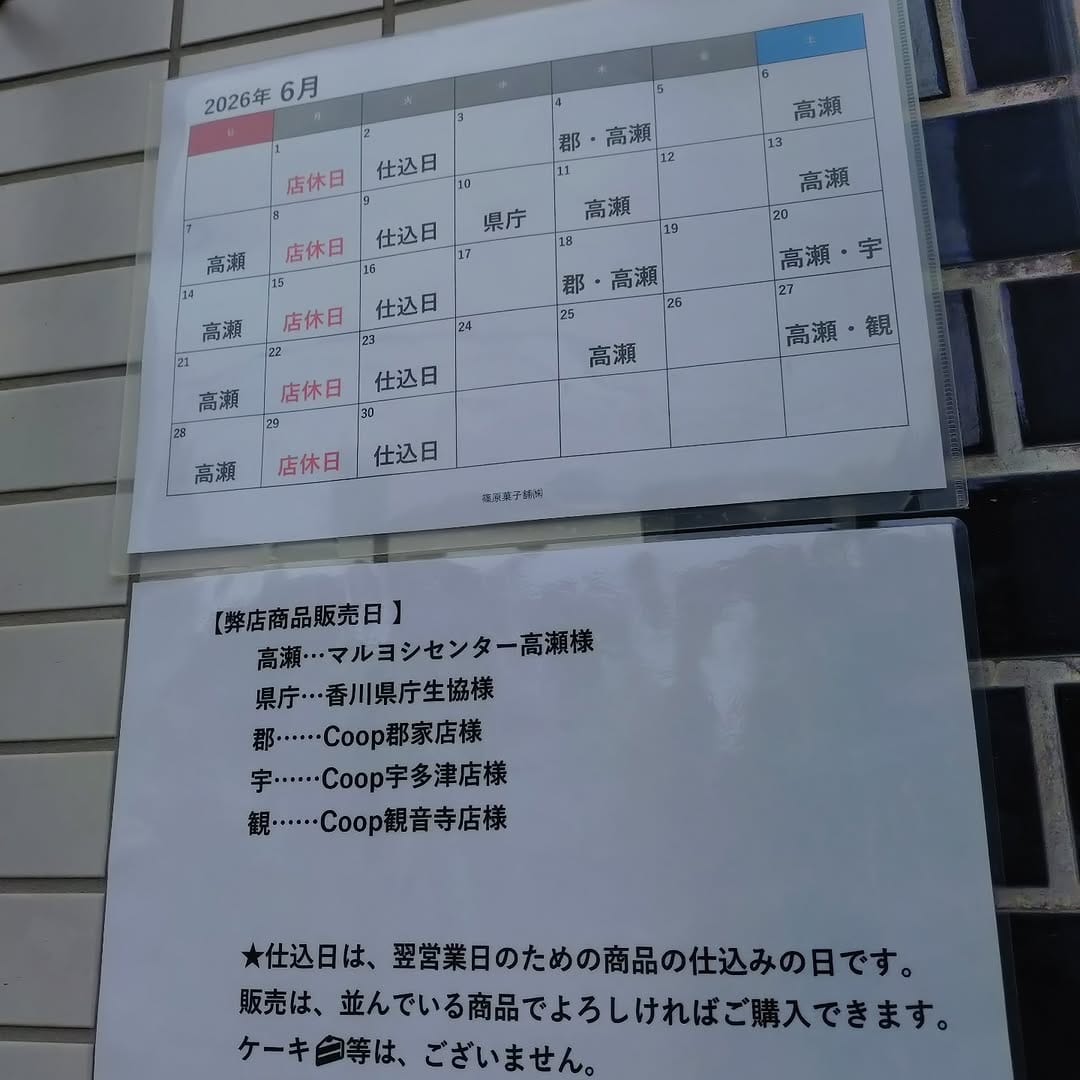 2026年 6月
日 月 火 水 木 金 土
1 2 3 4 5 6
店休日 仕込日 郡・高瀬 高瀬
7 8 9 10 11 12 13
高瀬 店休日 仕込日 県庁 高瀬 高瀬
14 15 16 17 18 19 20
高瀬 店休日 仕込日 郡・高瀬 高瀬・宇
21 22 23 24 25 26 27
高瀬 店休日 仕込日 高瀬 高瀬・観
28 29 30
高瀬 店休日 仕込日
篠原菓子舗㈱
【弊店商品販売日 】
高瀬…マルヨシセンター高瀬様
県庁…香川県庁生協様
郡……Coop郡家店様
宇……Coop宇多津店様
観……Coop観音寺店様
★仕込日は、翌営業日のための商品の仕込みの日です。
販売は、並んでいる商品でよろしければご購入できます。
ケーキ🍰等は、ございません。